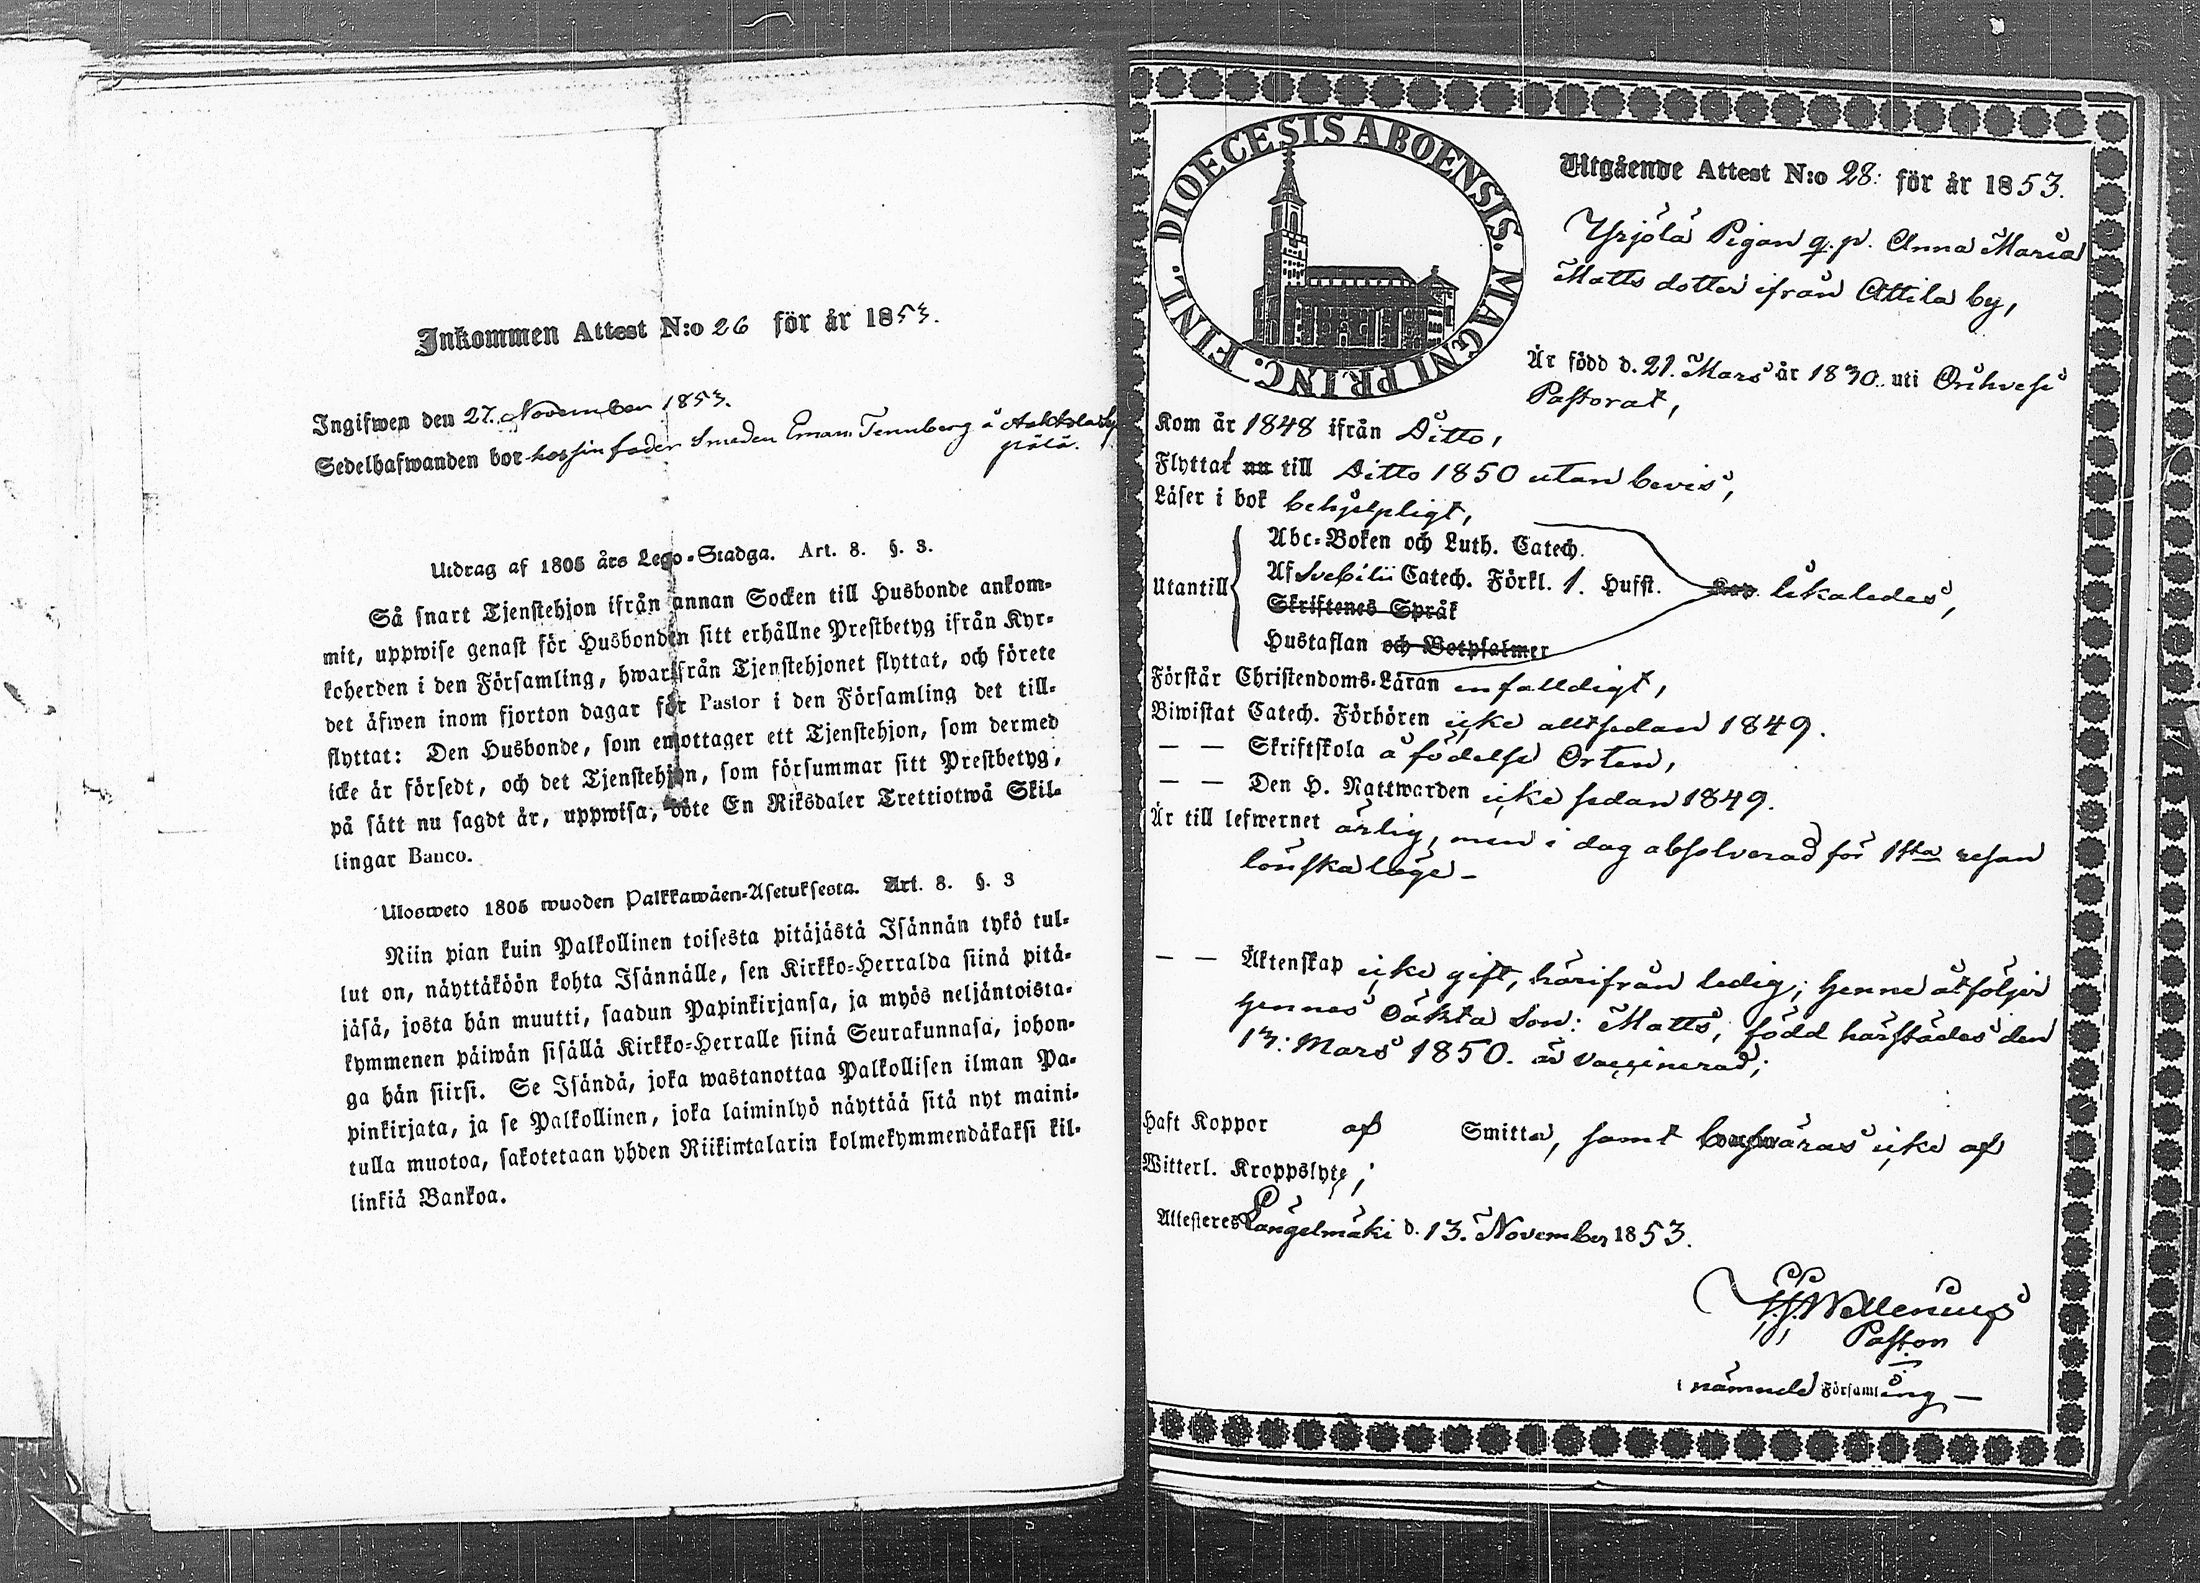 Inkommen Attest N:o 26 för år 1853.
Ingifwen den 27. November 1853.
Sedelhafwanden bor hos sin fader Smeden Eman. Tennberg å
Utdrag af 1805 års Lego-Stadga. Art. 8. §. 3.
Så snart Tjenstehjon ifrån annan Socken till Husbonde ankom-
mit, uppwise genast för Husbonden sitt erhållne Prestbetyg ifrån Kyr-
koherden i den Församling, hwarifrån Tjenstehjonet flyttat, och förete
det äfwen inom fjorton dagar för Pastor i den Församling det till-
flyttat: Den Husbonde, som emottager ett Tjenstehjon, som dermed
icke är försedt, och det Tjenstehjon, som försummar sitt Prestbetyg,
på sätt nu sagdt är, uppwisa, böte En Riksdaler Trettiotwå Skil-
lingar Banco.
Ulosweto 1805 wuoden Palkkawäen-Asetuksesta. Art. 8. §. 3
Niin pian kuin Palkollinen toisesta pitäjästä Isännän tykö tul-
lut on, näyttäköön kohta Isännälle, sen Kirkko-Herralda siinä pitä-
jäsä, josta hän muutti, saadun Papinkirjansa, ja myös neljäntoista-
kymmenen päiwän sisällä Kirkko-Herralle siinä Seurakunnasa, johon-
ga hän siirsi. Se Isändä, joka wastanottaa Palkollisen ilman Pa-
pinkirjata, ja se Palkollinen, joka laiminlyö näyttää sitä nyt maini-
tulla muotoa, sakotetaan yhden Riikintalarin kolmekymmendäkaksi kil-
linkiä Bankoa.
DIOECESIS ABOENSIS. MAGNI PRINC. FINL.
Utgående Attest N:o 28: för år 1853.
Yrjölä Pigan q. p. Anna Maria
Matts dotter ifrån Attila by,
Är född d. 21. Mars år 1830. uti Orihvesi
Pastorat,
Kom år 1848 ifrån Ditto,
Flyttat nu till Ditto 1850 utan bevis,
Läser i bok behjelpligt,
Utantill
Abc-Boken och Luth. Catech.
Af Svebilii Catech. Förkl. 1. Hufst. Kap. likaledes,
Skriftenes Språk
Hustaflan och Botpsalmer
Förstår Christendoms-Läran enfalldigt,
Biwistat Catech. Förhören icke allt sedan 1849.
— — Skriftskola å födelse Orten,
— — Den H. Nattwarden icke sedan 1849.
Är till lefwernet ärlig, men i dag absolverad för 1sta resan
lönskaläge –
— — Äktenskap icke gift, härifrån ledig; Henne åtföljer
hennes oäkta Son: Matts, född härstädes den
13: Mars 1850. är vaccinerad;
Haft Koppor af Smitta, samt besväras icke af
Witterl. Kroppslyte;
Attesteres Längelmäki d. 13. November 1853.
Wellenius
Pastor
i nämnde Församling –